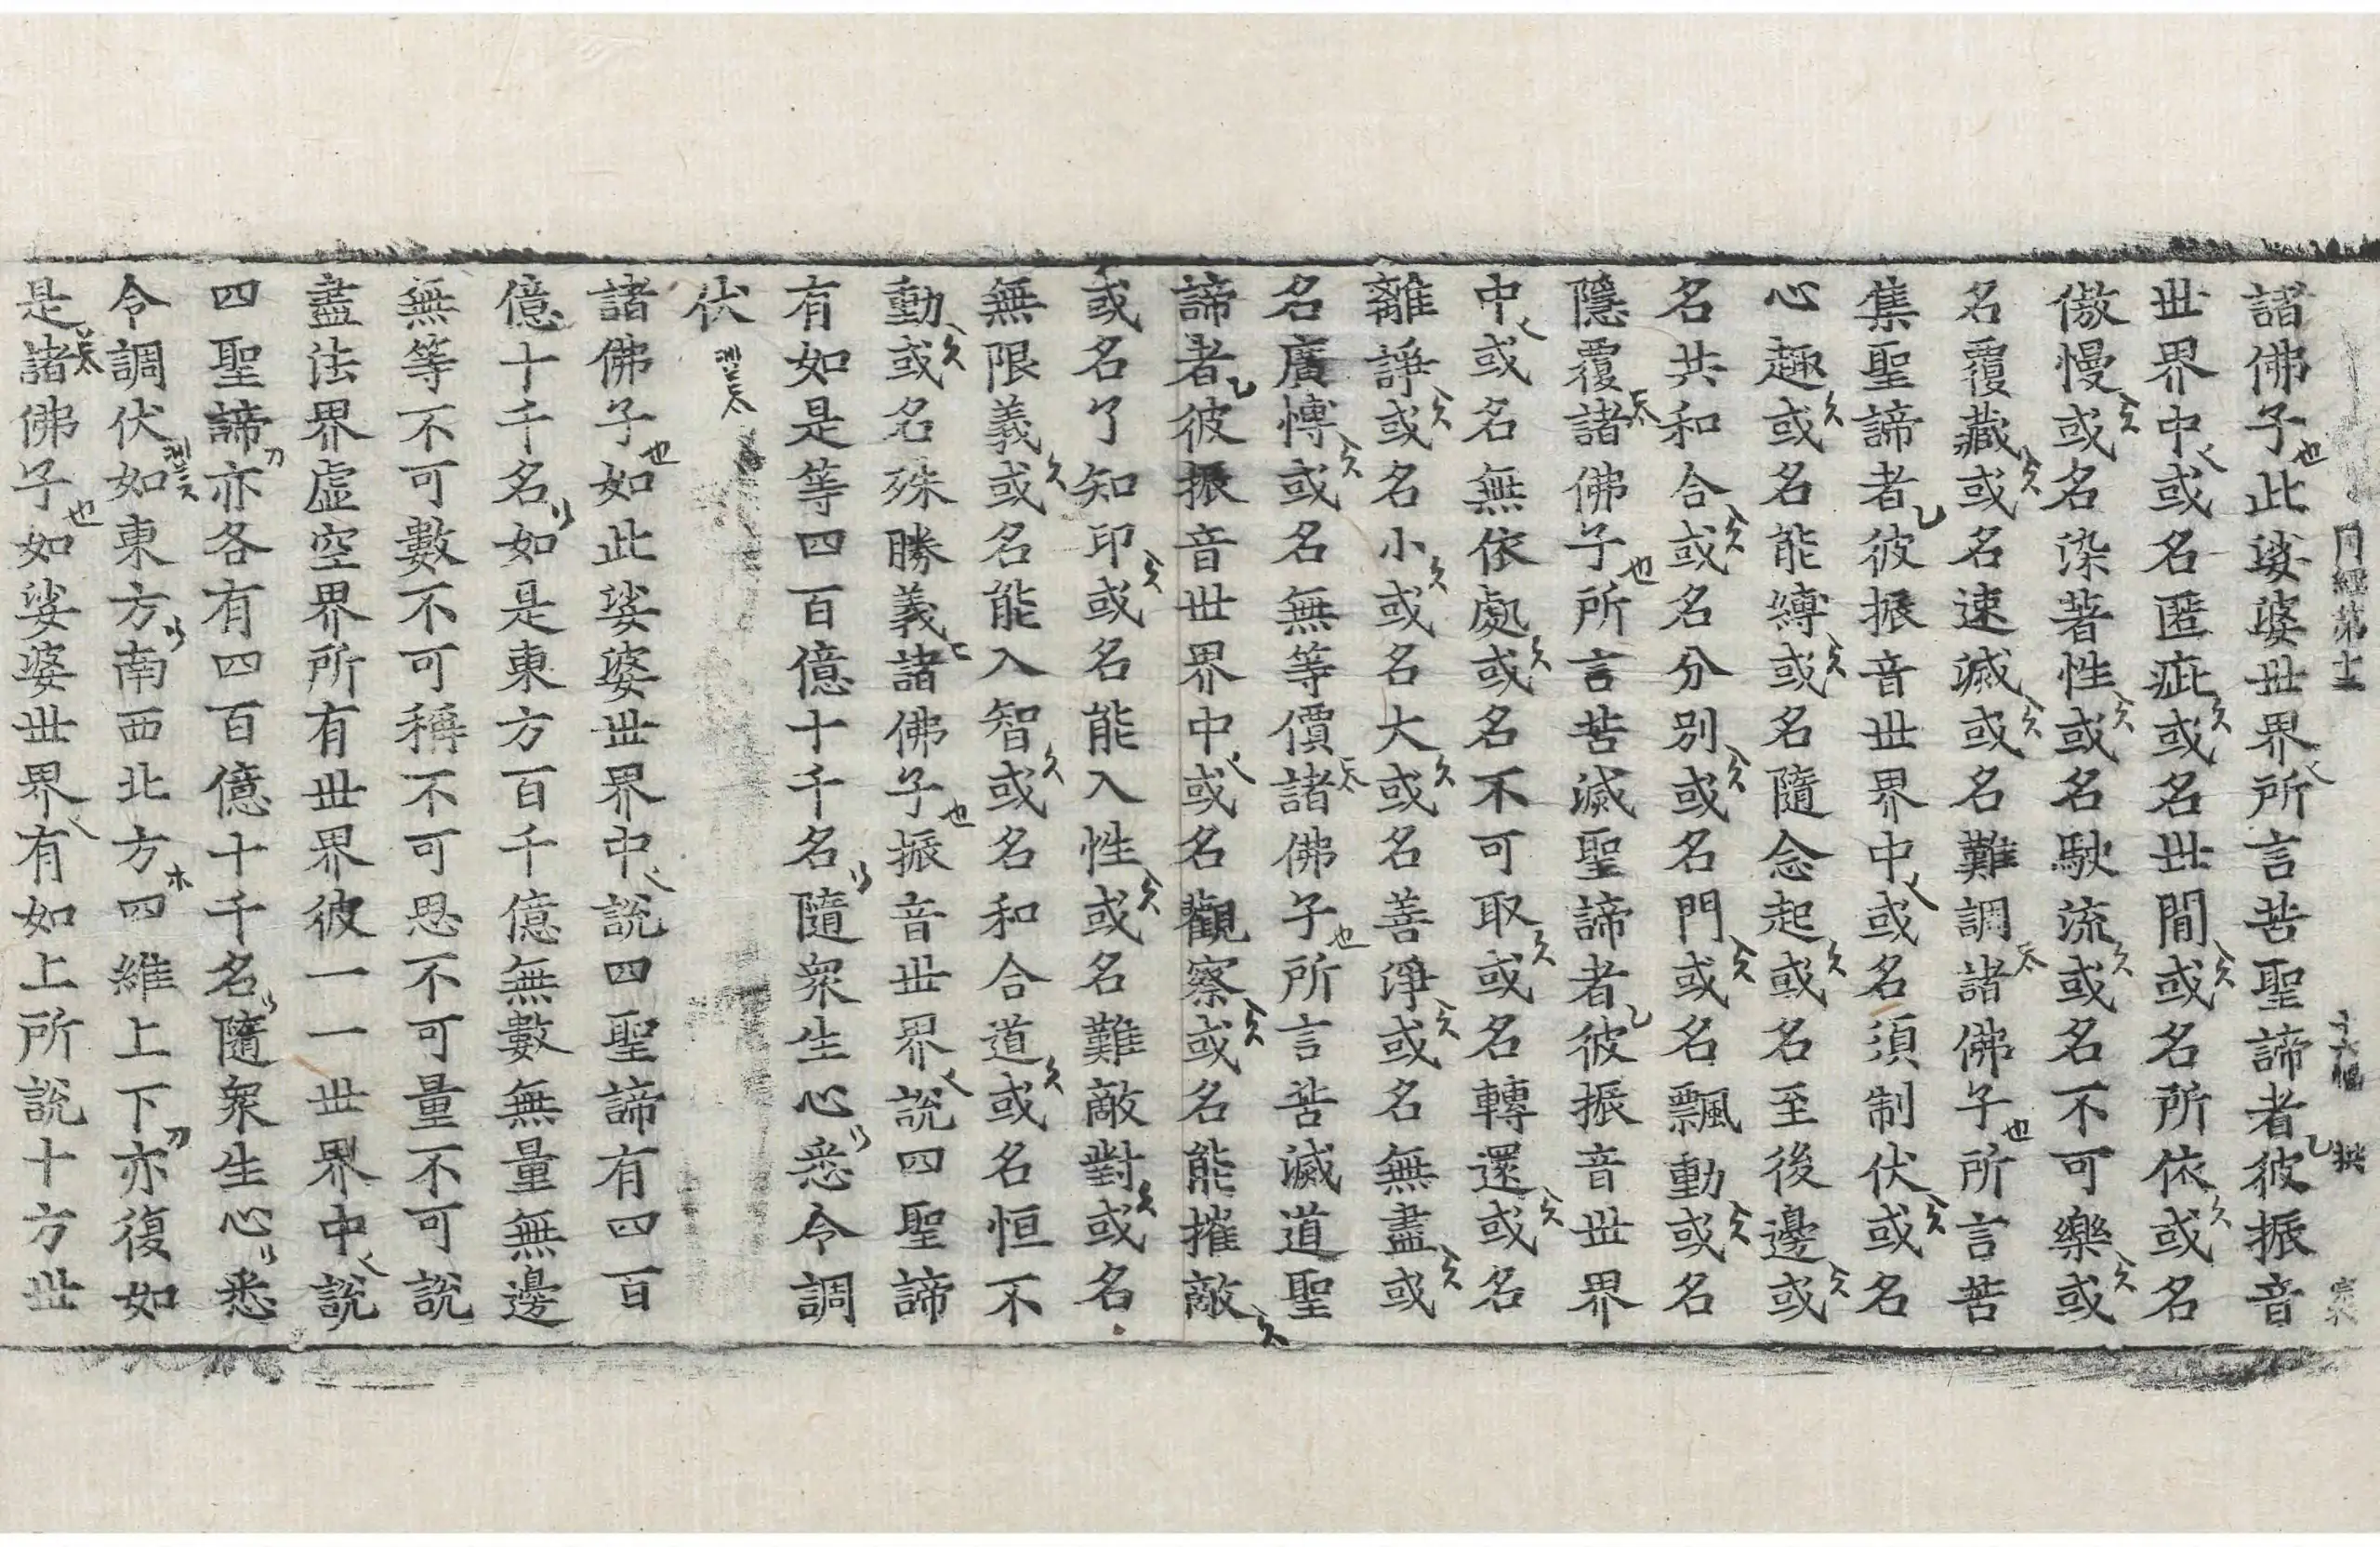 諸佛子此娑婆世界所言苦聖諦者彼振音
世界中或名匿疵或名世間或名所依或名
傲慢或名染著性或名駛流或名不可樂或
名覆藏或名速滅或名難調諸佛子所言苦
集聖諦者彼振音世界中或名須制伏或名
心趣或名能縛或名隨念起或名至後邊或
名共和合或名分別或名門或名飄動或名
隱覆諸佛子所言苦滅聖諦者彼振音世界
中或名無依處或名不可取或名轉還或名
離諍或名小或名大或名善淨或名無盡或
名廣博或名無等價諸佛子所言苦滅道聖
諦者彼振音世界中或名觀察或名能摧敵
或名了知印或名能入性或名難敵對或名
無限義或名能入智或名和合道或名恒不
動或名殊勝義諸佛子振音世界說四聖諦
有如是等四百億十千名隨衆生心悉令調
伏
諸佛子如此娑婆世界中說四聖諦有四百
億十千名如是東方百千億無數無量無邊
無等不可數不可稱不可思不可量不可說
盡法界虛空界所有世界彼一一世界中說
四聖諦亦各有四百億十千名隨衆生心悉
令調伏如東方南西北方四維上下亦復如
是諸佛子如娑婆世界有如上所說十方世